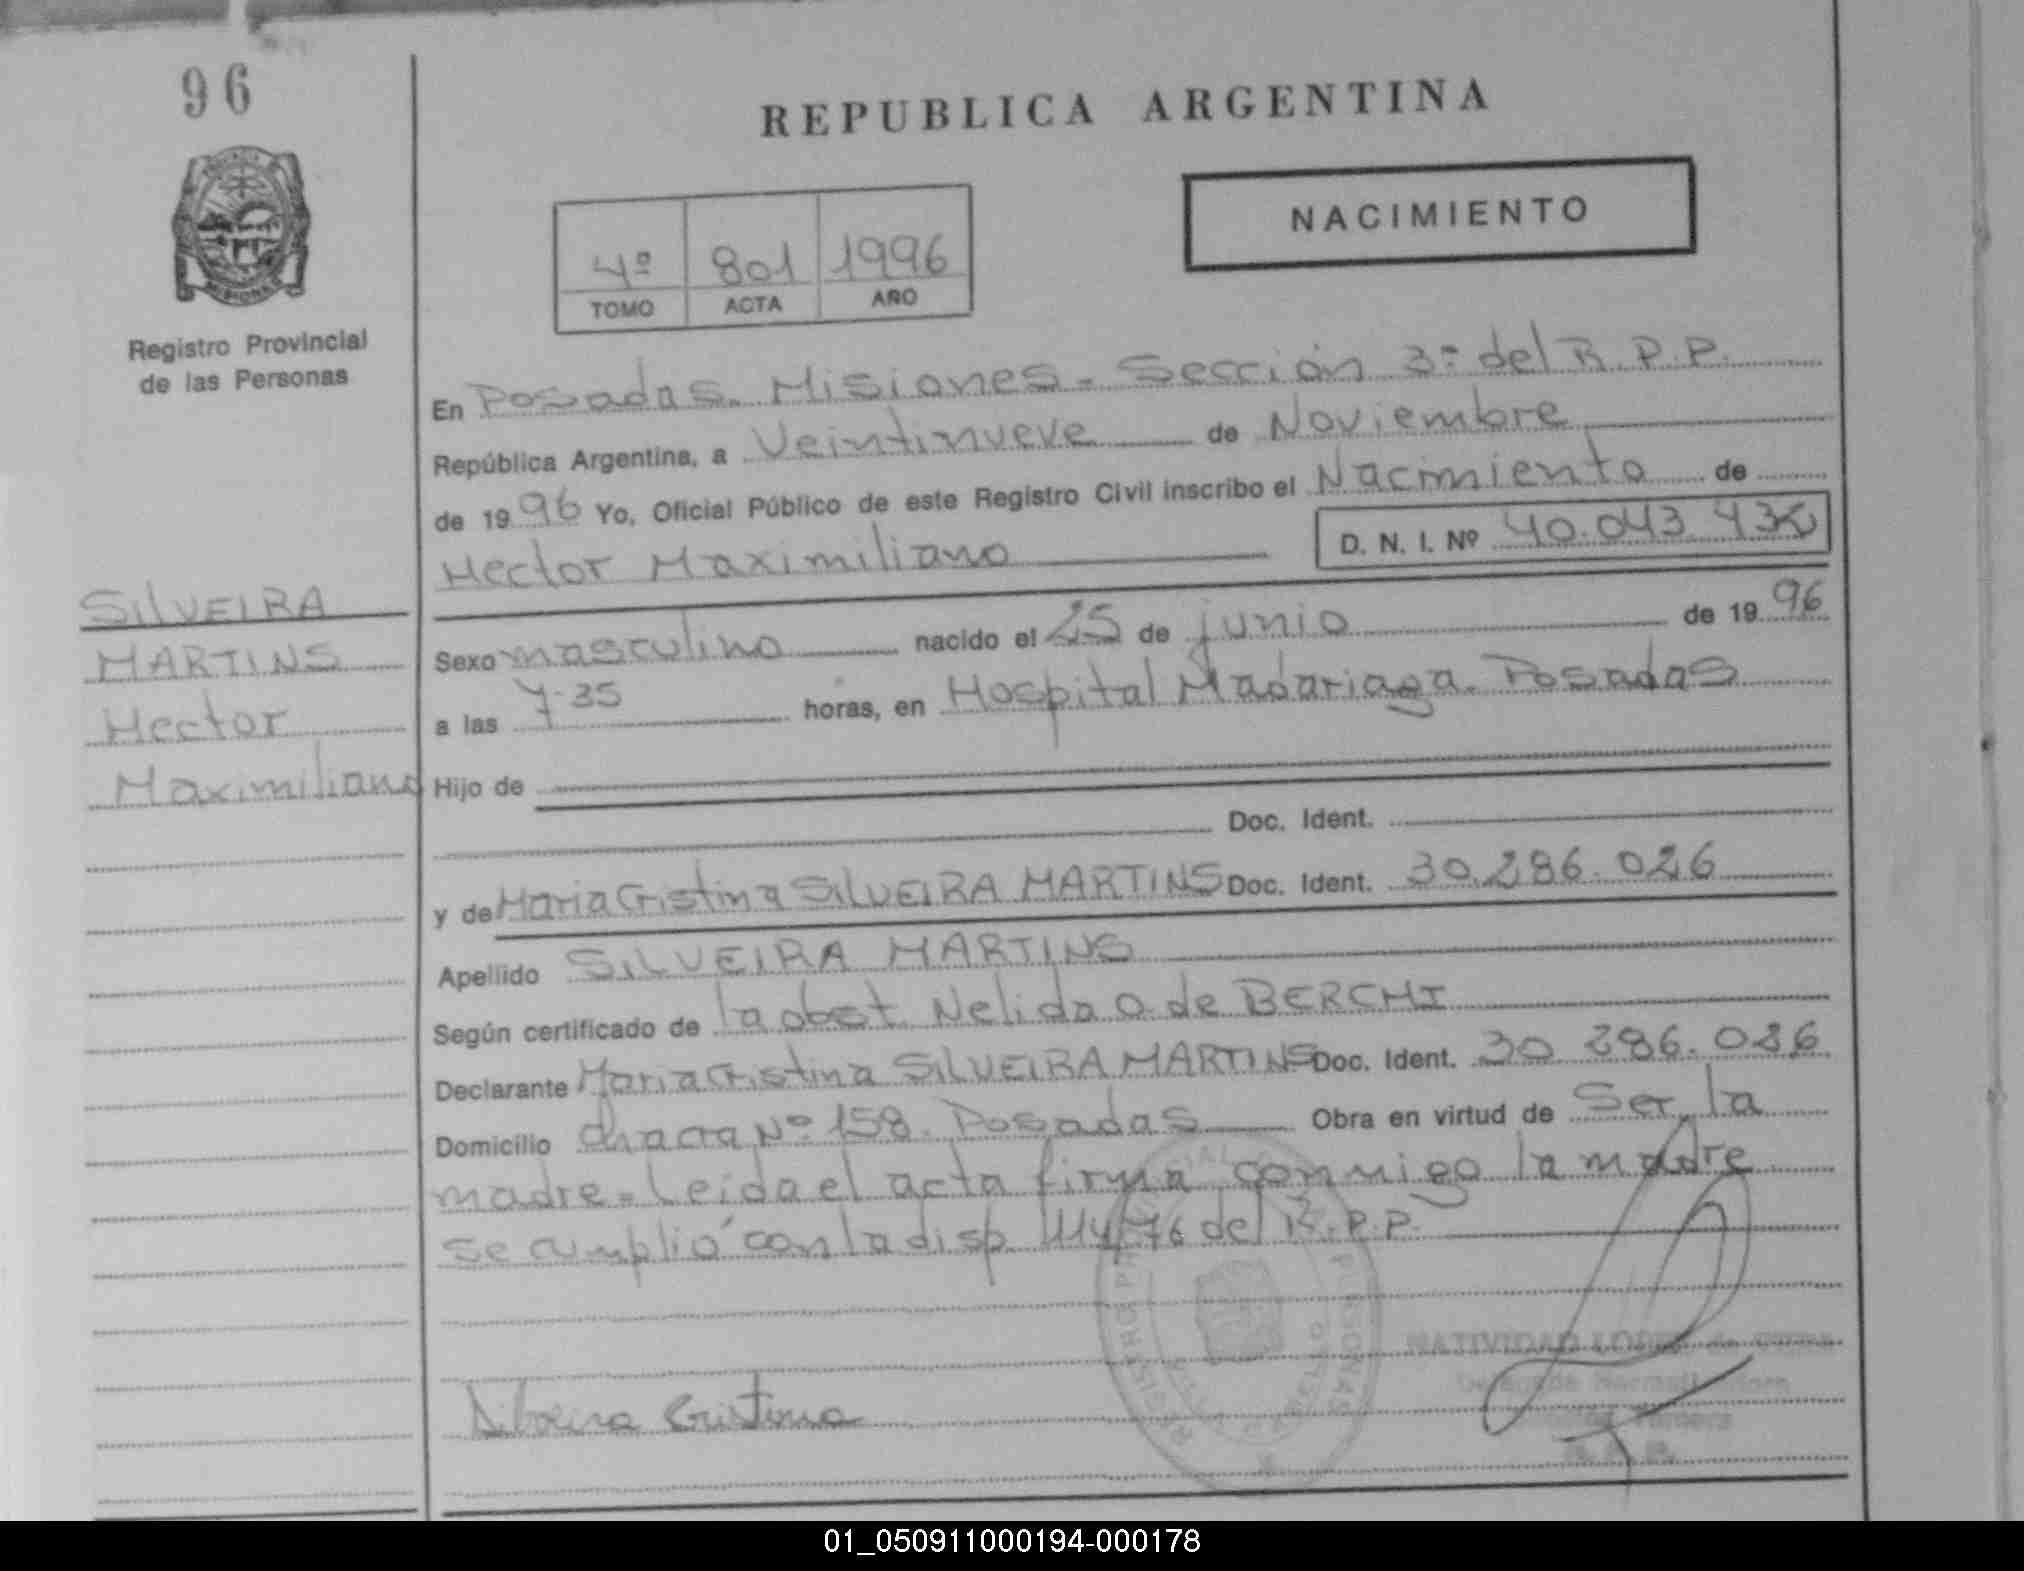 96
REPUBLICA ARGENTINA
NACIMIENTO
4º 801 1996
TOMO ACTA AÑO
MISIONES
Registro Provincial
de las Personas
En Posadas. Misiones - Sección 3ª del R.P.P.
República Argentina, a Veintinueve de Noviembre
de 1996 Yo, Oficial Público de este Registro Civil inscribo el Nacimiento de
Hector Maximiliano D. N. I. Nº 40.043.43
SILVEIRA
MARTINS
Hector
Maximiliano
Sexo masculino nacido el 25 de junio de 1996
a las 7.35 horas, en Hospital Madariaga. Posadas
Hijo de
Doc. Ident.
y de Maria Cristina SILVEIRA MARTINS Doc. Ident. 30.286.026
Apellido SILVEIRA MARTINS
Según certificado de la obst. Nelida O. de BERCHI
Declarante Maria Cristina SILVEIRA MARTINS Doc. Ident. 30 286.026
Domicilio chacra Nº 158. Posadas Obra en virtud de Ser la
madre - Leida el acta firma conmigo la madre
se cumplió con la disp 114/76 del R.P.P.
Silveira Cristina
NATIVIDAD LOPEZ de
01_050911000194-000178